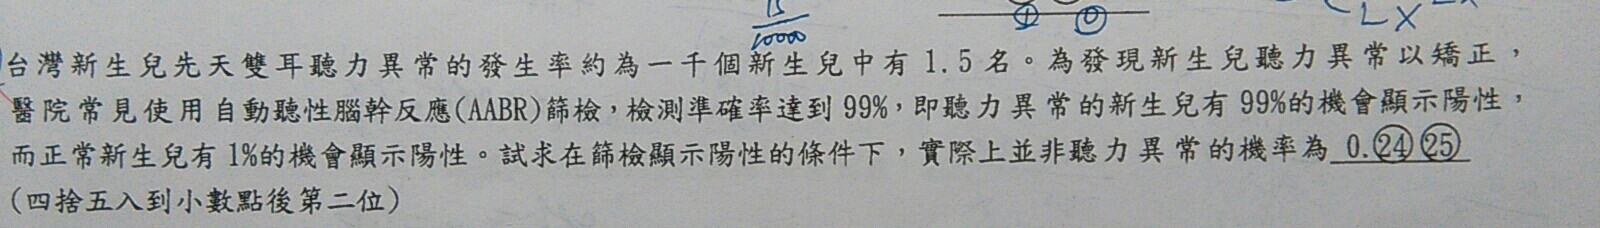 15/10000
① ⓪
台灣新生兒先天雙耳聽力異常的發生率約為一千個新生兒中有 1.5 名。為發現新生兒聽力異常以矯正，
醫院常見使用自動聽性腦幹反應(AABR)篩檢，檢測準確率達到 99%，即聽力異常的新生兒有 99%的機會顯示陽性，
而正常新生兒有 1%的機會顯示陽性。試求在篩檢顯示陽性的條件下，實際上並非聽力異常的機率為 0.㉔㉕
(四捨五入到小數點後第二位)